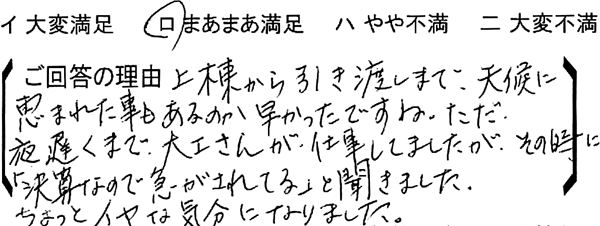 イ 大変満足 ロ まあまあ満足 ハ やや不満 ニ 大変不満
ご回答の理由 上棟から引き渡しまで、天候に
恵まれた事もあるのか早かったですね。ただ、
夜遅くまで、大工さんが、仕事してましたが、その時に
「決算なので急がされてる」と聞きました。
ちょっとイヤな気分になりました。